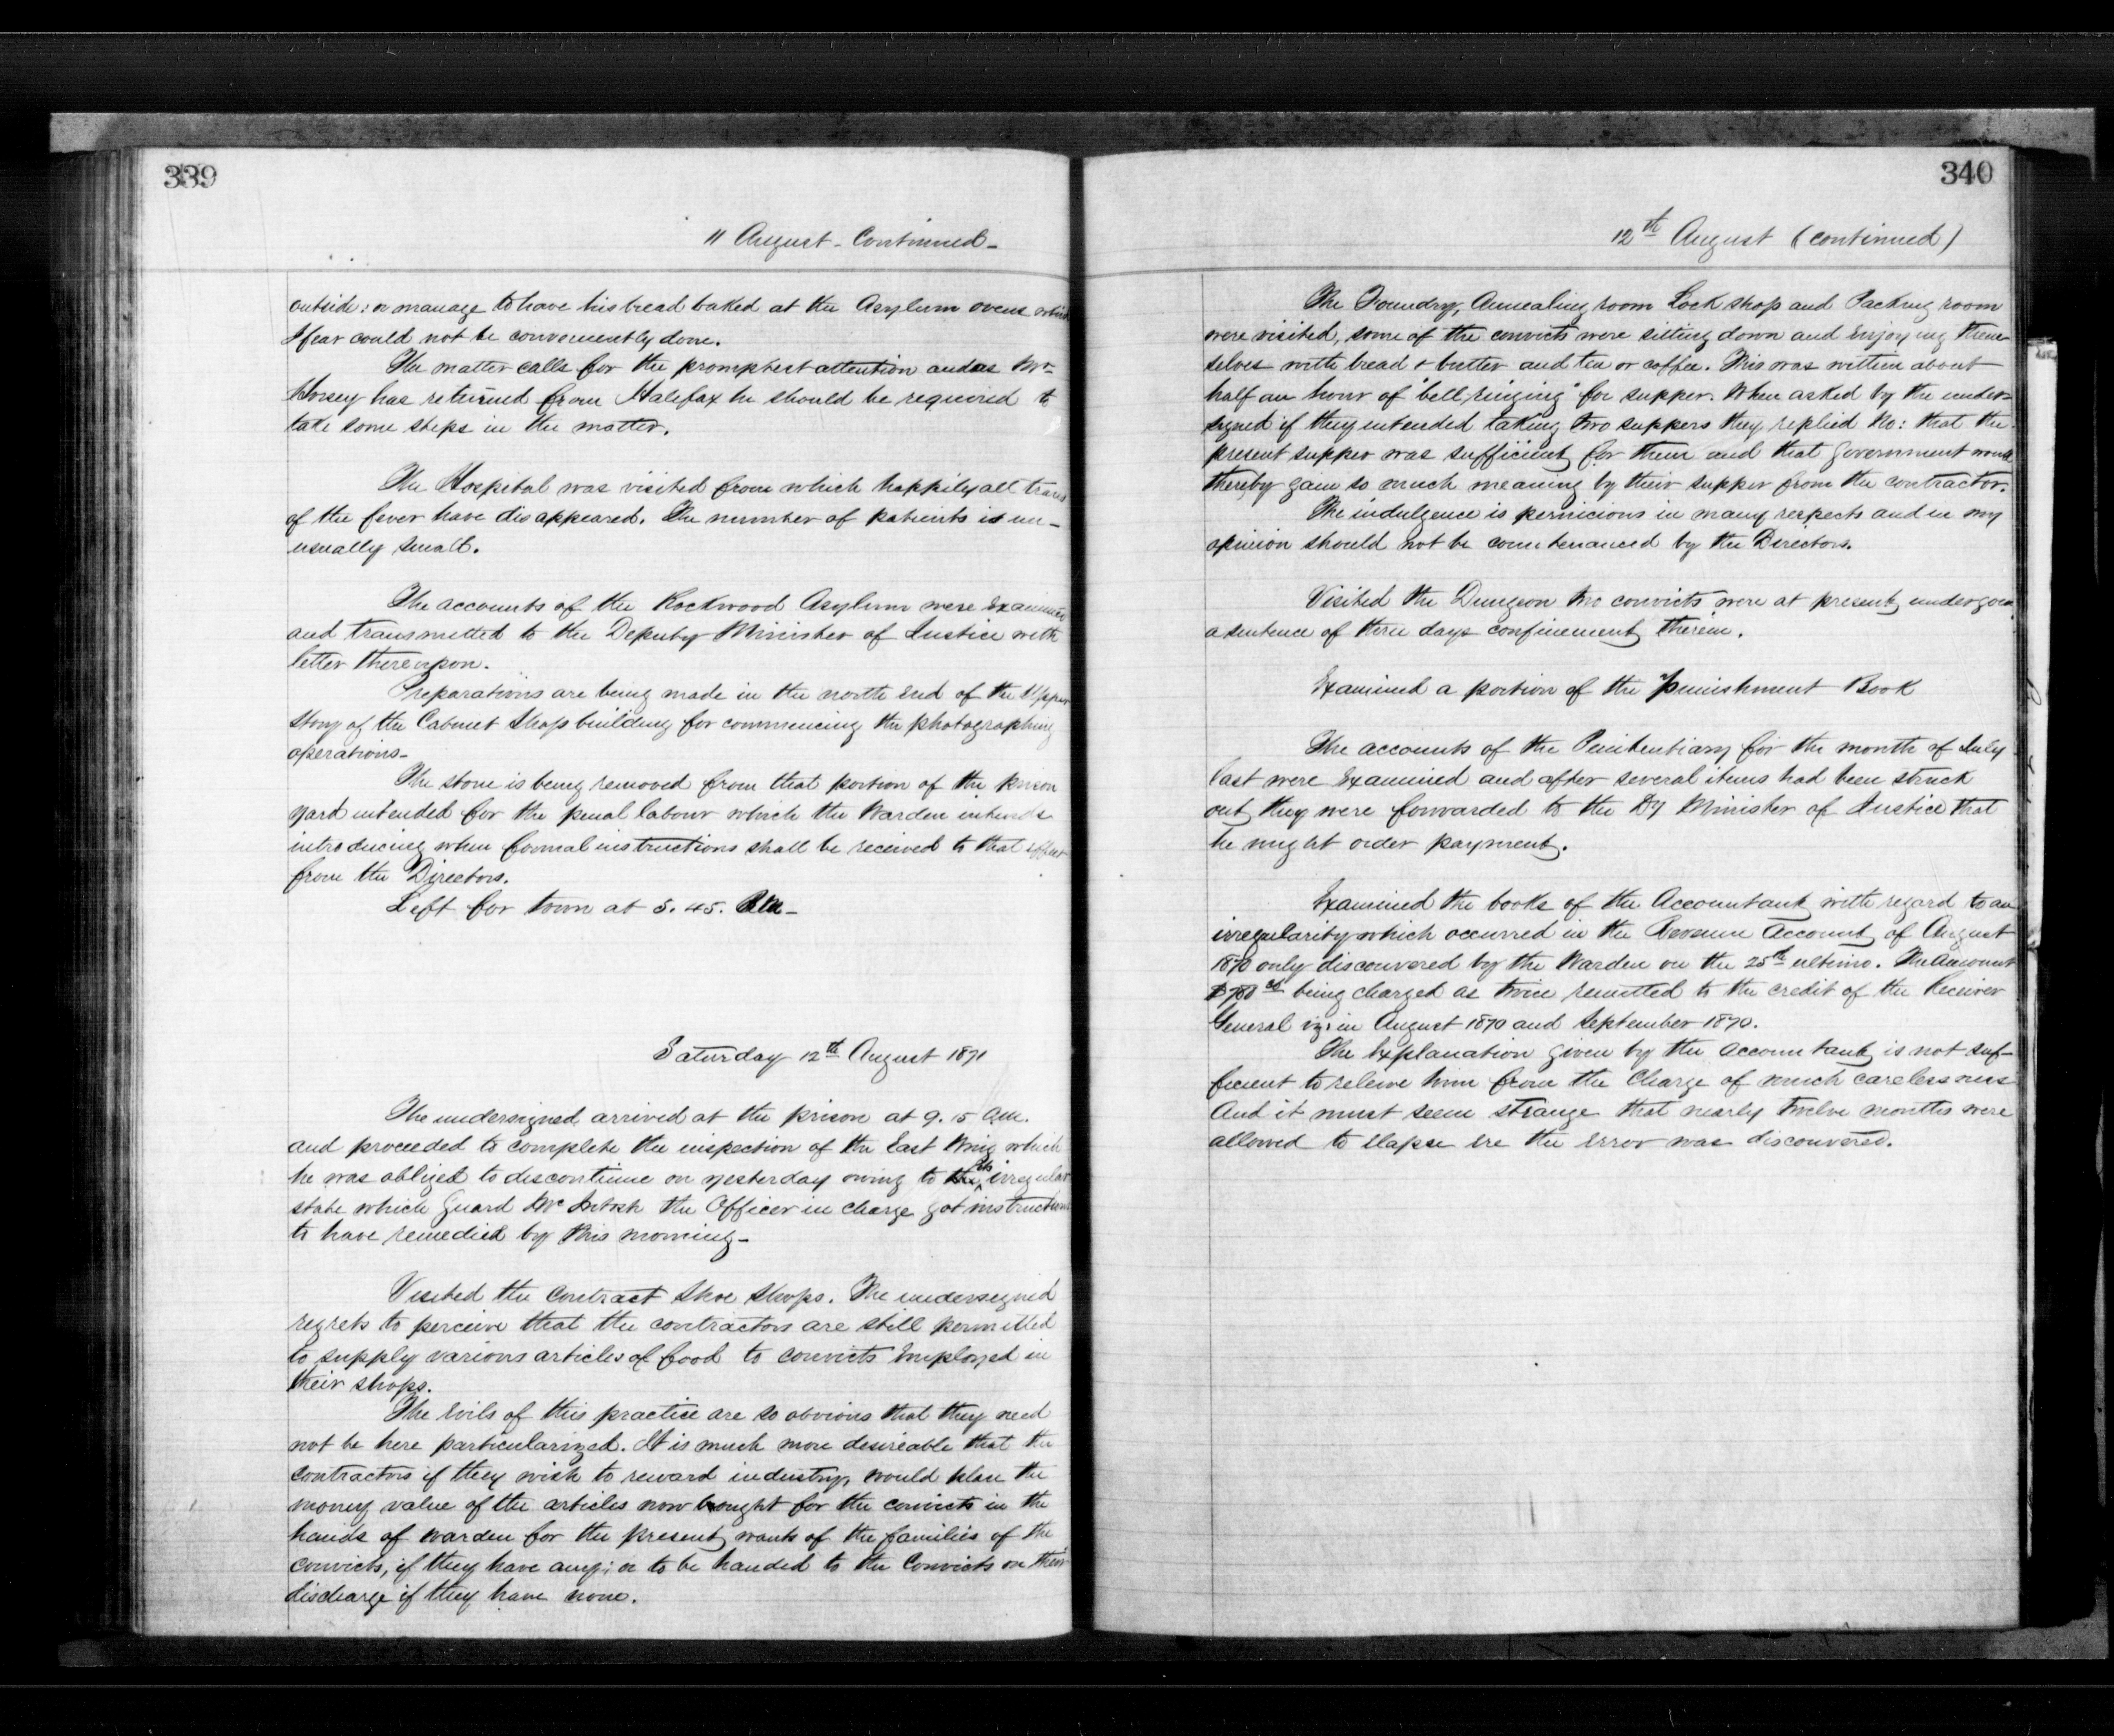 339
11 August - Continued -
outside: or manage to have his bread baked at the Asylum ovens which
I fear could not be conveniently done.
The matter calls for the promptest attention and as Mr
Horsey has returned from Halifax he should be required to
take some steps in the matter.
The Hospital was visited from which happily all traces
of the fever have disappeared. The number of patients is un-
usually small.
The accounts of the Rockwood Asylum were Examined
and transmitted to the Deputy Minister of Justice with
letter thereupon.
Preparations are being made in the north End of the Upper
Story of the Cabinet Shop building for commencing the photographing
operations -
The stone is being removed from that portion of the prison
yard intended for the penal labour which the Warden intends
introducing when formal instructions shall be received to that effect
from the Directors.
Left for town at 5.45. P.M. -
Saturday 12th August 1871
The undersigned arrived at the prison at 9.15 a.m.
and proceeded to complete the inspection of the East Wing which
he was obliged to discontinue on yesterday owing to its irregular
state which Guard McIntosh the Officer in charge got instructions
to have remedied by this morning -
Visited the Contract Shoe Shops. The undersigned
regrets to perceive that the contractors are still permitted
to supply various articles of food to convicts Employed in
their shops.
The Evils of this practice are so obvious that they need
not be here particularized. It is much more desireable that the
Contractors if they wish to reward industry, would place the
money value of the articles now bought for the convicts in the
hands of warden for the present wants of the families of the
convicts, if they have any; or to be handed to the Convicts on their
discharge if they have none.
340
12th August (continued)
The Foundry, Annealing room Lock shop and Packing room
were visited, some of the convicts were sitting down and Enjoying them-
selves with bread & butter and tea or coffee. This was within about
half an hour of "bell ringing" for supper. When asked by the under-
signed if they intended taking two suppers they replied No: that the
present supper was sufficient for them and that Government would
thereby gain so much meaning by their supper from the contractor.
The indulgence is pernicious in many respects and in my
opinion should not be countenanced by the Directors.
Visited the Dungeon two convicts were at present undergoing
a sentence of three days confinement therein.
Examined a portion of the Punishment Book
The accounts of the Penitentiary for the month of July
last were Examined and after several items had been struck
out they were forwarded to the Dy Minister of Justice that
he might order payment.
Examined the books of the Accountant with regard to an
irregularity which occurred in the Revenue Account of August
1870 only discouvered by the Warden on the 25th ultimo. The Amount
being charged as twice remitted to the credit of the Receiver
General viz: in August 1870 and September 1870.
The Explanation given by the accountant is not suf-
ficient to releive him from the Charge of much carelessness
And it must seem strange that nearly twelve months were
allowed to Elapse ere the Error was discouvered.